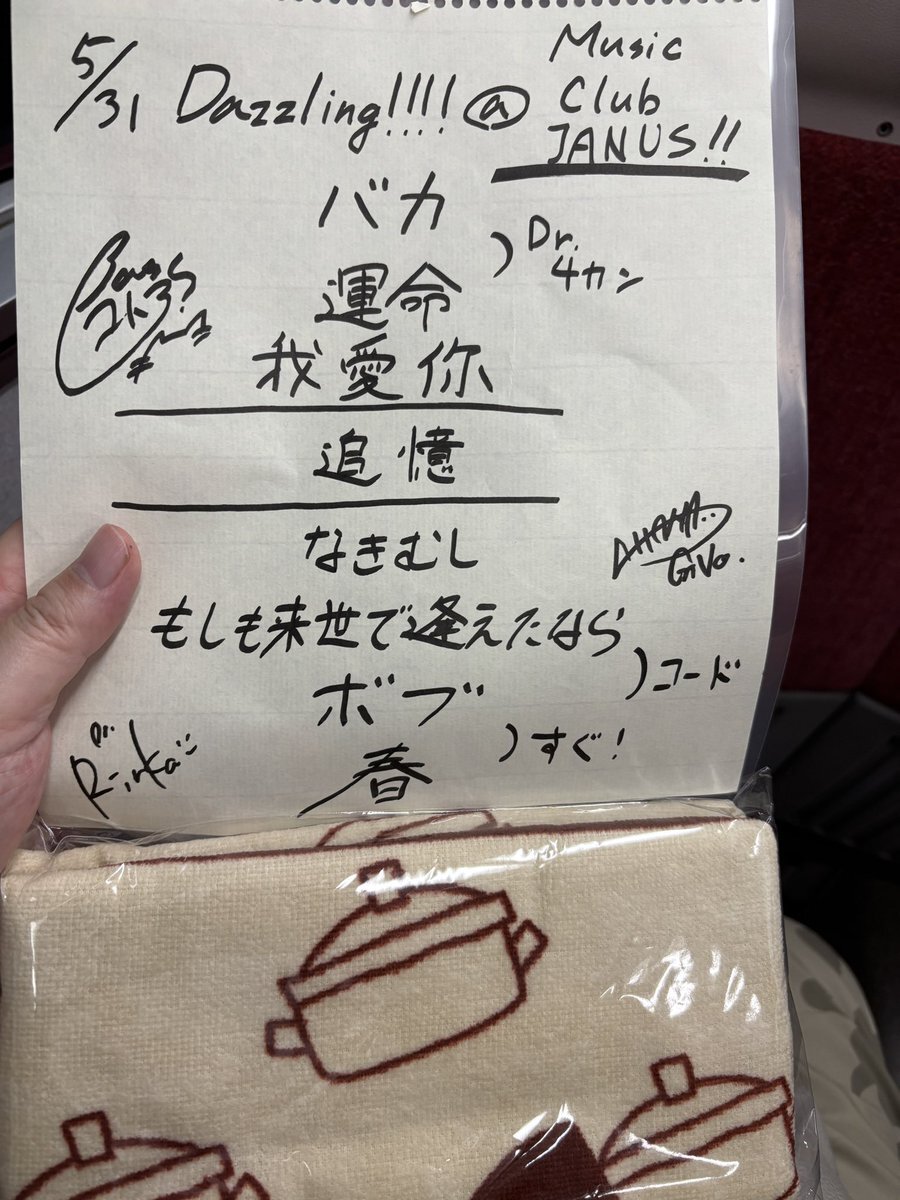 5/31 Dazzling!!!! @ Music Club JANUS!!
バカ
)Dr. 4カン
運命
我愛你
追憶
なきむし
もしも来世で逢えたなら
)コード
ボブ
)すぐ!
春
Rinka
GtVo.